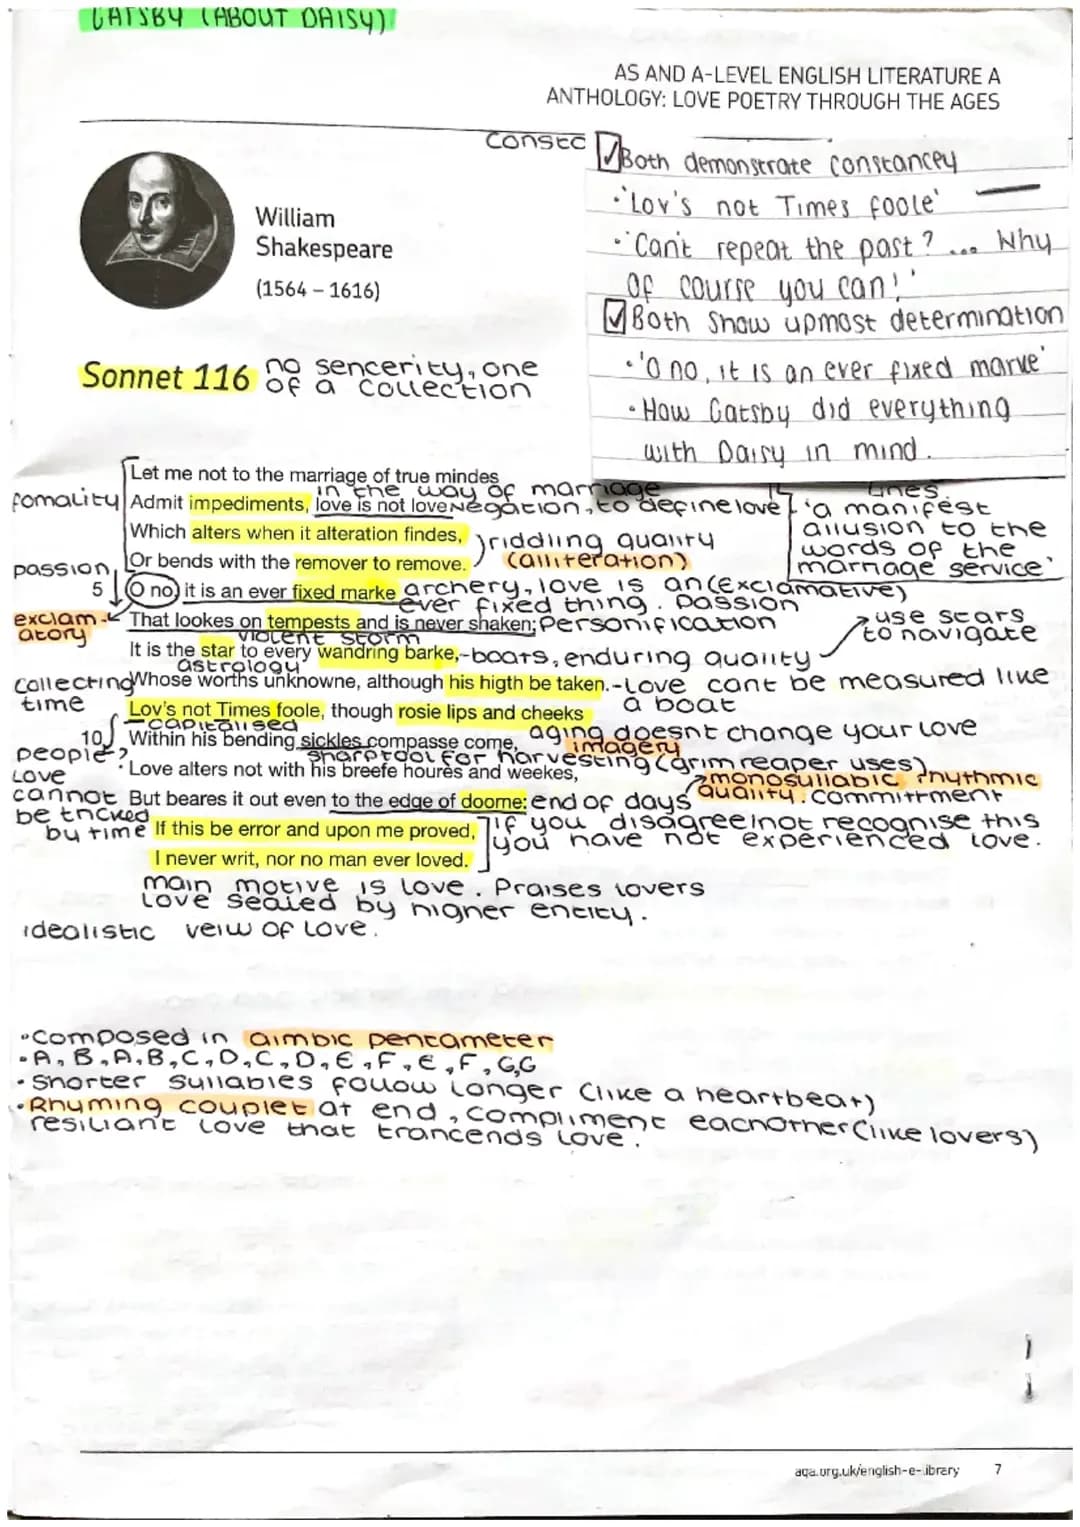 GATSBY (ABOUT DAISY)
AS AND A-LEVEL ENGLISH LITERATURE A
ANTHOLOGY: LOVE POETRY THROUGH THE AGES
Constc
Both demonstrate constancey
·'Lov's not Times foole'
·'Can't repeat the past? ... Why
of course you can!'
Both show upmost determination
·'O no, it is an ever fixed marke'
·How Gatsby did everything
with Daisy in mind.
William
Shakespeare
(1564 – 1616)
Sonnet 116
no sencerity, one
of a collection
Let me not to the marriage of true mindes
in the way of marriage
fomality
Admit impediments, love is not love
Negation, to define love
Lines
'a manifest
allusion to the
words of the
marriage service'
Which alters when it alteration findes,
riddling quality
(alliteration)
Or bends with the remover to remove.
passion
5
O no, it is an ever fixed marke
archery, love is an (exclamative)
ever fixed thing. Passion
exclam-
atory
That lookes on tempests and is never shaken;
Personification
violent storm
use stars
to navigate
It is the star to every wandring barke,
-boats, enduring quality
astrology
Whose worths unknowne, although his higth be taken.
-Love cant be measured like
a boat
Collecting
time
Lov's not Times foole, though rosie lips and cheeks
capitalised
aging doesnt change your love
10
Within his bending sickles compasse come,
imagery
sharp tool for harvesting (grim reaper uses)
people?
Love
cannot
be tricked
by time
Love alters not with his breefe houres and weekes,
monosyllabic rhythmic
quality. commitment
But beares it out even to the edge of doome:
end of days
If this be error and upon me proved,
I never writ, nor no man ever loved.
if you disagree/not recognise this
you have not experienced love.
main motive is love. Praises lovers
Love sealed by higher entity.
idealistic veiw of love.
·Composed in aimbic pentameter
·A, B, A, B, C, D, C, D, E, F, E, F, G, G
·Shorter syllables follow longer (like a heartbeat)
·Rhyming couplet at end, compliment eachother (like lovers)
resiliant love that trancends love.
aqa.org.uk/english-e-library
7